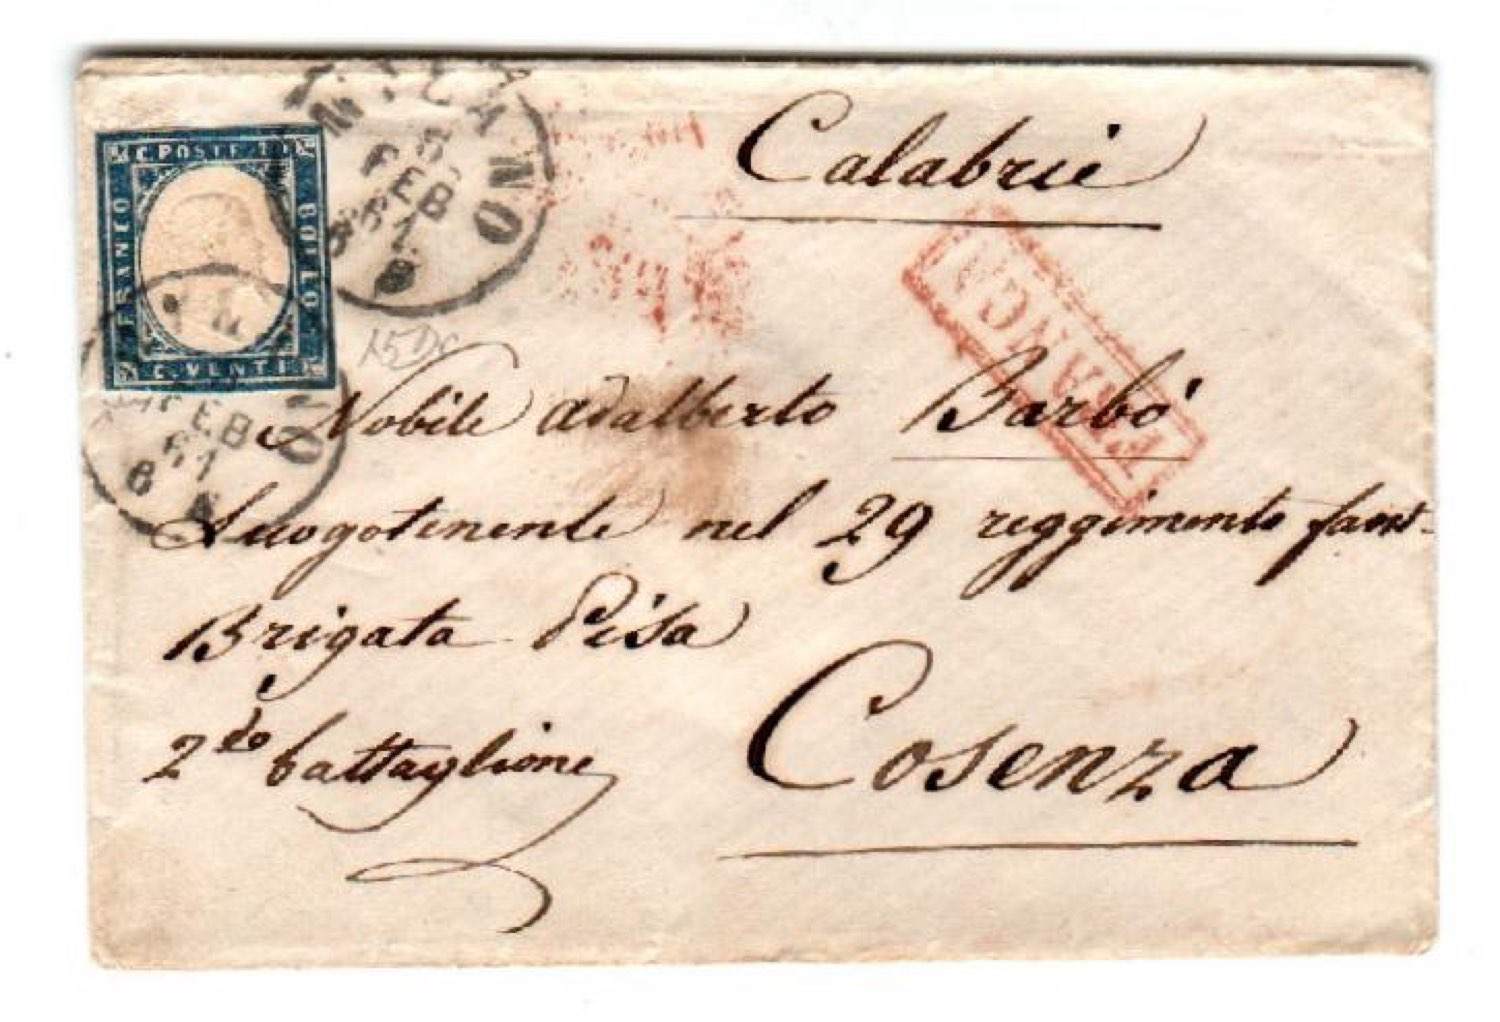 Calabrie
C. POSTE
FRANCO
BOLLO
C. VENTI
MILANO
FEB
61
FRANCA
15Dc
MILANO
FEB
61
Nobile Adalberto Barbó
Luogotenente nel 29 reggimento fant
Brigata Pisa
2do battaglione
Cosenza